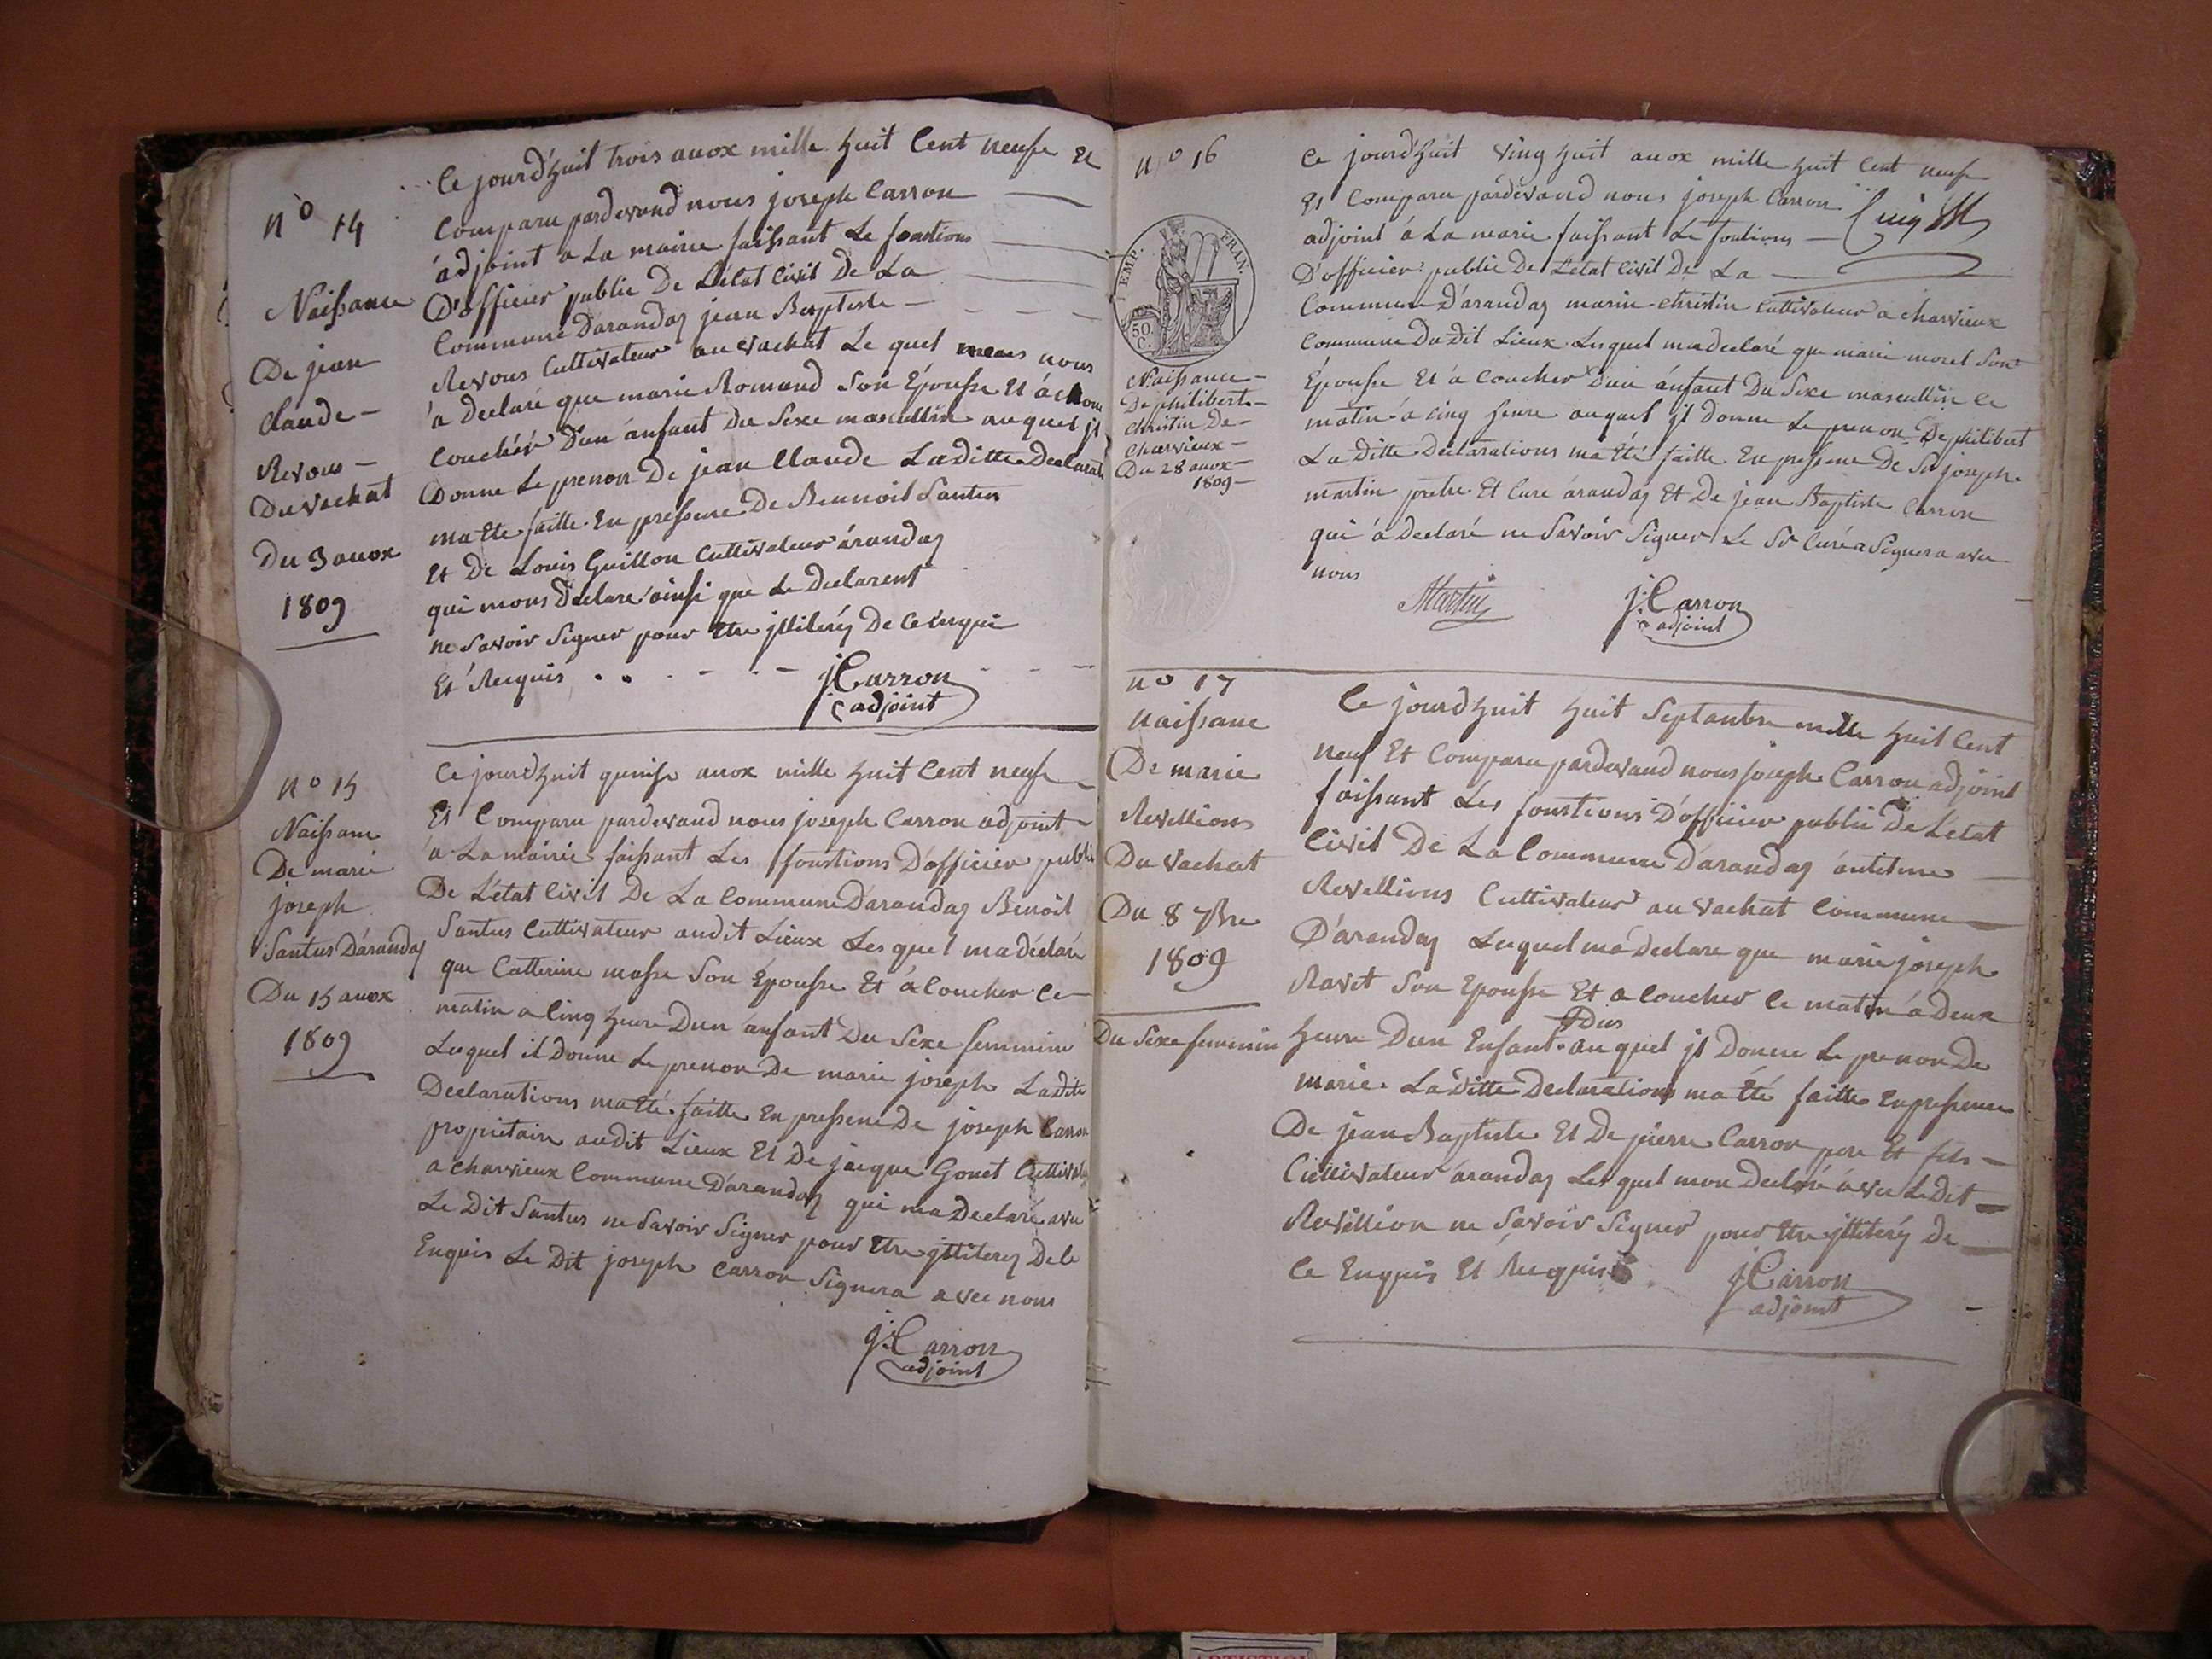 n° 14
Naissance
De jean
Claude -
Revous -
Du vachat
Du 3 auox
1809
Ce jourd'huit trois auox mille huit Cent neufe Et
Comparu pardevand nous joseph Carron
adjoint a La mairie faissant Le fonctions
D'officier public De L'état Civil De La
Commune D'arandas jean Baptiste
Revous Cultivateur au vachat Le quel nous
a declaré que marie Romand Son Épousse Et á
Couchér D'un ánfant Du Sexe mascullin auquel jl
Donne Le prenon De jean Claude La ditte Declarati
ma Ete faitte En pressence De Bennoit Santus
Et De Louis Guillon Cultivateur árandas
qui mons Declare ainsi que Le Declarent
ne Savoir Signer pour Etre jlliterés De Ce enquis
Et Requis
j: Carron
adjoint
n° 15
Naissance
De marie
joseph
Santus D'arandas
Du 15 auox
1809
Ce jourd'huit quinse auox mille huit Cent neufe
Et Comparu pardevand nous joseph Carron adjoint
a La mairie faissant Les fonstions D'officier public
De L'état Civil De La Commune D'arandas Benoit
Santus Cultivateur audit Lieux Les quel ma déclaré
que Catterine masse Son Épousse Et á Coucher Ce
matin a Cinq heure Dun anfant Du Sexe femminin
Lequel il Donne Le prenon De marie joseph Ladite
Declarations ma Eté faitte En pressence De joseph Carron
propriétaire audit Lieux Et De jacque Gonet Cultivate
a Charvieux Commune D'arandas qui ma Declaré avec
Le Dit Santus ne Savoir Signer pour Etre jlliterés De Ce
Enquis Le Dit joseph Carron Signera avec nous
j: Carron
adjoint
n° 16
EMP. FRAN.
50. C.
Naissance -
De philibert -
Christin De -
Charvieux -
Du 28 auox -
1809 -
Ce jourd'huit ving huit auox mille huit Cent neufe
Et Comparu pardevand nous joseph Carron
adjoint á La marie faissant Le fontions
D'officier public De L'état Civil De La
Commune D'arandas marin Christin Cultivateur a Charvieux
Commune Du Dit Lieux Lequel ma declaré que marie morel Son
Épousse Et á Coucher D'un ánfant Du Sexe mascullin Ce
matin á Cinq heure auquel jl Donne Le prenon De philibert
La Ditte Declarations ma Eté faitte En pressence De Sr joseph
martin pretre Et Cure árandas Et De jean Baptiste Carron
qui á Declaré ne Savoir Signer Le Sr Curé a Signera avec
nous
Martin
j: Carron
adjoint
n° 17
Naissance
De marie
Revellions
Du vachat
Du 8 7bre
1809
Ce jourd'huit huit Septanbre mille huit Cent
neuf Et Comparu pardevand nous joseph Carron adjoint
faissant Les fonstions D'officier public De L'état
Civil De La Commune D'arandas
Revellions Cultivateur au vachat Commune
D'arandas Lequel má Declare que marie joseph
Ravet Son Epousse Et a Coucher Ce matin á Deux
Du Sexe feminin
heure Dun Enfant auquel jl Donne Le prenon De
marie La ditte Declarations ma Eté faitte En pressence
De jean Baptiste Et De pierre Carron pere Et fils
Cultivateur árandas Les quel mon Declaré avec Le Dit
Revellion ne Savoir Signer pour Etre jlliterés De
Ce Enquis Et Requis
j: Carron
adjoint